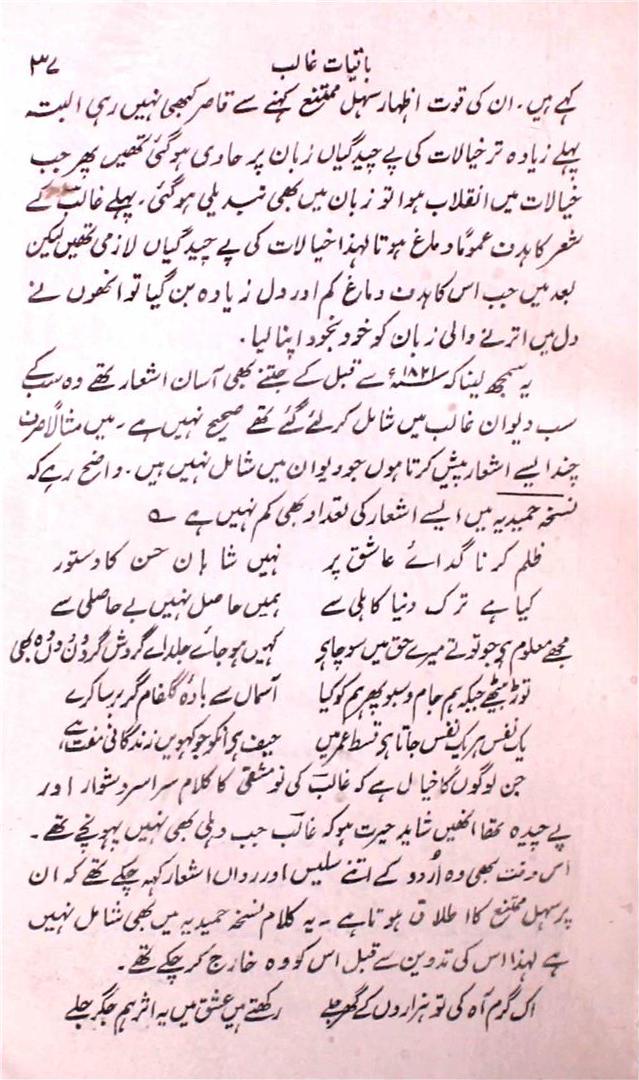 باقیات غالب ۳۷
کہے ہیں۔ ان کی قوت اظہار سہل ممتنع کہنے سے قاصر کبھی نہیں رہی البتہ
پہلے زیادہ تر خیالات کی پے چیدگیاں زبان پر حاوی ہو گئی تھیں پھر جب
خیالات میں انقلاب ہوا تو زبان میں بھی تبدیلی ہو گئی۔ پہلے غالب کے
شعر کا ہدف عموماً دماغ ہوتا لہذا خیالات کی پے چیدگیاں لازمی تھیں لیکن
بعد میں جب اس کا ہدف دماغ کم اور دل زیادہ بن گیا تو انھوں نے
دل میں اترنے والی زبان کو خود بخود اپنا لیا۔
یہ سمجھ لینا کہ ۱۸۲۱ء سے قبل کے جتنے بھی آسان اشعار تھے وہ سب کے
سب دیوان غالب میں شامل کر لئے گئے تھے صحیح نہیں ہے۔ میں مثالاً صرف
چند ایسے اشعار پیش کرتا ہوں جو دیوان میں شامل نہیں ہیں۔ واضح رہے کہ
نسخہ حمیدیہ میں ایسے اشعار کی تعداد بھی کم نہیں ہے ؎
ظلم کرنا گدائے عاشق پر نہیں شاہان حسن کا دستور
کیا ہے ترک دنیا کاہلی سے ہمیں حاصل نہیں بے حاصلی سے
مجھے معلوم ہی جو تو نے میرے حق میں سوچا ہی کہیں ہو جائے جلد اے گردش گردون دوں وہ بھی
توڑ بیٹھے جبکہ ہم جام و سبو پھر ہم کو کیا آسماں سے بادۂ گلفام گر برسا کرے
یک نفس ہر یک نفس جاتا ہی قسط عمر میں حیف ہی انکو جو کہویں زندگانی مفت ہے
جن لوگوں کا خیال ہے کہ غالب کی نو مشقی کا کلام سراسر دشوار اور
پے چیدہ تھا انھیں شاید حیرت ہو کہ غالب جب دہلی بھی نہیں پہونچے تھے۔
اس وقت بھی وہ اُردو کے اتنے سلیس اور رواں اشعار کہہ چکے تھے کہ ان
پر سہل ممتنع کا اطلاق ہوتا ہے۔ یہ کلام نسخہ حمیدیہ میں بھی شامل نہیں
ہے لہذا اس کی تدوین سے قبل اس کو وہ خارج کر چکے تھے۔
اک گرم آہ کی تو ہزاروں کے گھر جلے رکھتے ہیں عشق میں یہ اثر ہم جگر جلے